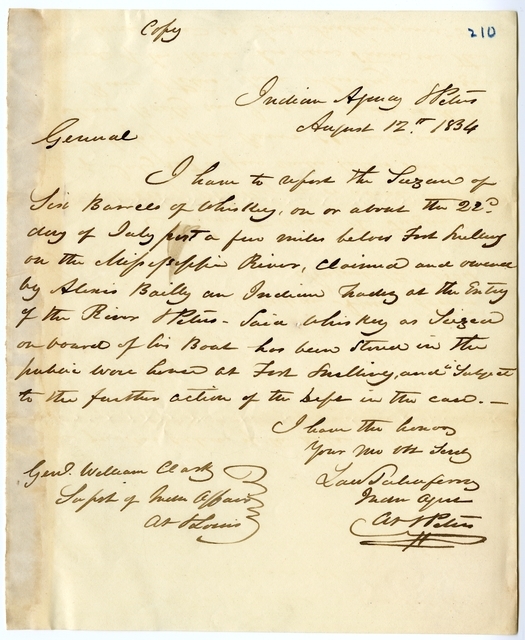 Copy
210
Indian Agency St Peters
August 12th 1834
General
I have to report the Seizure of
Six Barrels of Whiskey, on or about the 22d
day of July past a few miles below Fort Snelling
on the Mississippi River, claimed and owned
by Alexis Bailly an Indian Trader at the Entry
of the River St Peters - Said Whiskey as Seized
on board of his Boat has been Stored in the
public ware house at Fort Snelling, and Subject
to the further action of the Dept in the case. —
I have the honor
Your Mo Obt Servt
Law Taliaferro
Indn Agent
At St Peters
Genl. William Clark
Supt of Indn Affairs
At St Louis